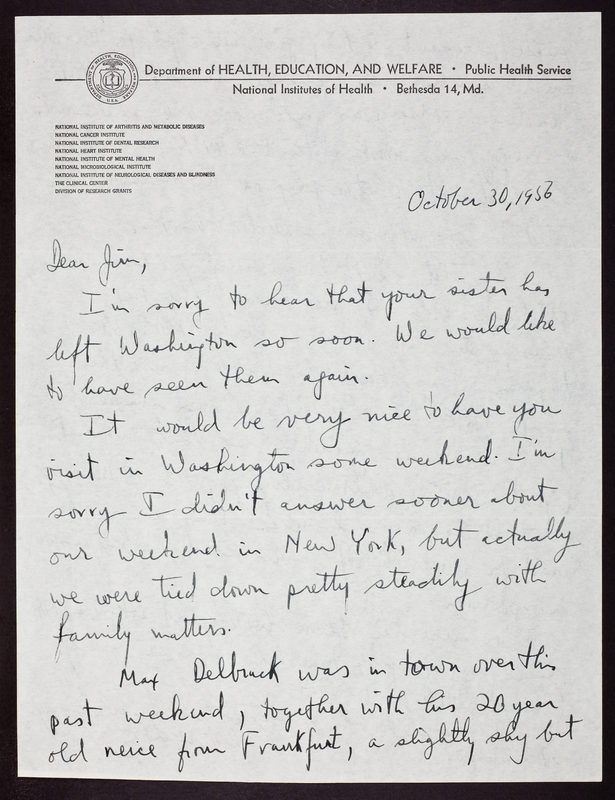 Department of HEALTH, EDUCATION, AND WELFARE · Public Health Service
National Institutes of Health · Bethesda 14, Md.
NATIONAL INSTITUTE OF ARTHRITIS AND METABOLIC DISEASES
NATIONAL CANCER INSTITUTE
NATIONAL INSTITUTE OF DENTAL RESEARCH
NATIONAL HEART INSTITUTE
NATIONAL INSTITUTE OF MENTAL HEALTH
NATIONAL MICROBIOLOGICAL INSTITUTE
NATIONAL INSTITUTE OF NEUROLOGICAL DISEASES AND BLINDNESS
THE CLINICAL CENTER
DIVISION OF RESEARCH GRANTS
October 30, 1956
Dear Jim,
I'm sorry to hear that your sister has
left Washington so soon. We would like
to have seen them again.
It would be very nice to have you
visit in Washington some weekend. I'm
sorry I didn't answer sooner about
our weekend in New York, but actually
we were tied down pretty steadily with
family matters.
Max Delbruck was in town over this
past weekend, together with his 20 year
old neice from Frankfurt, a slightly shy but